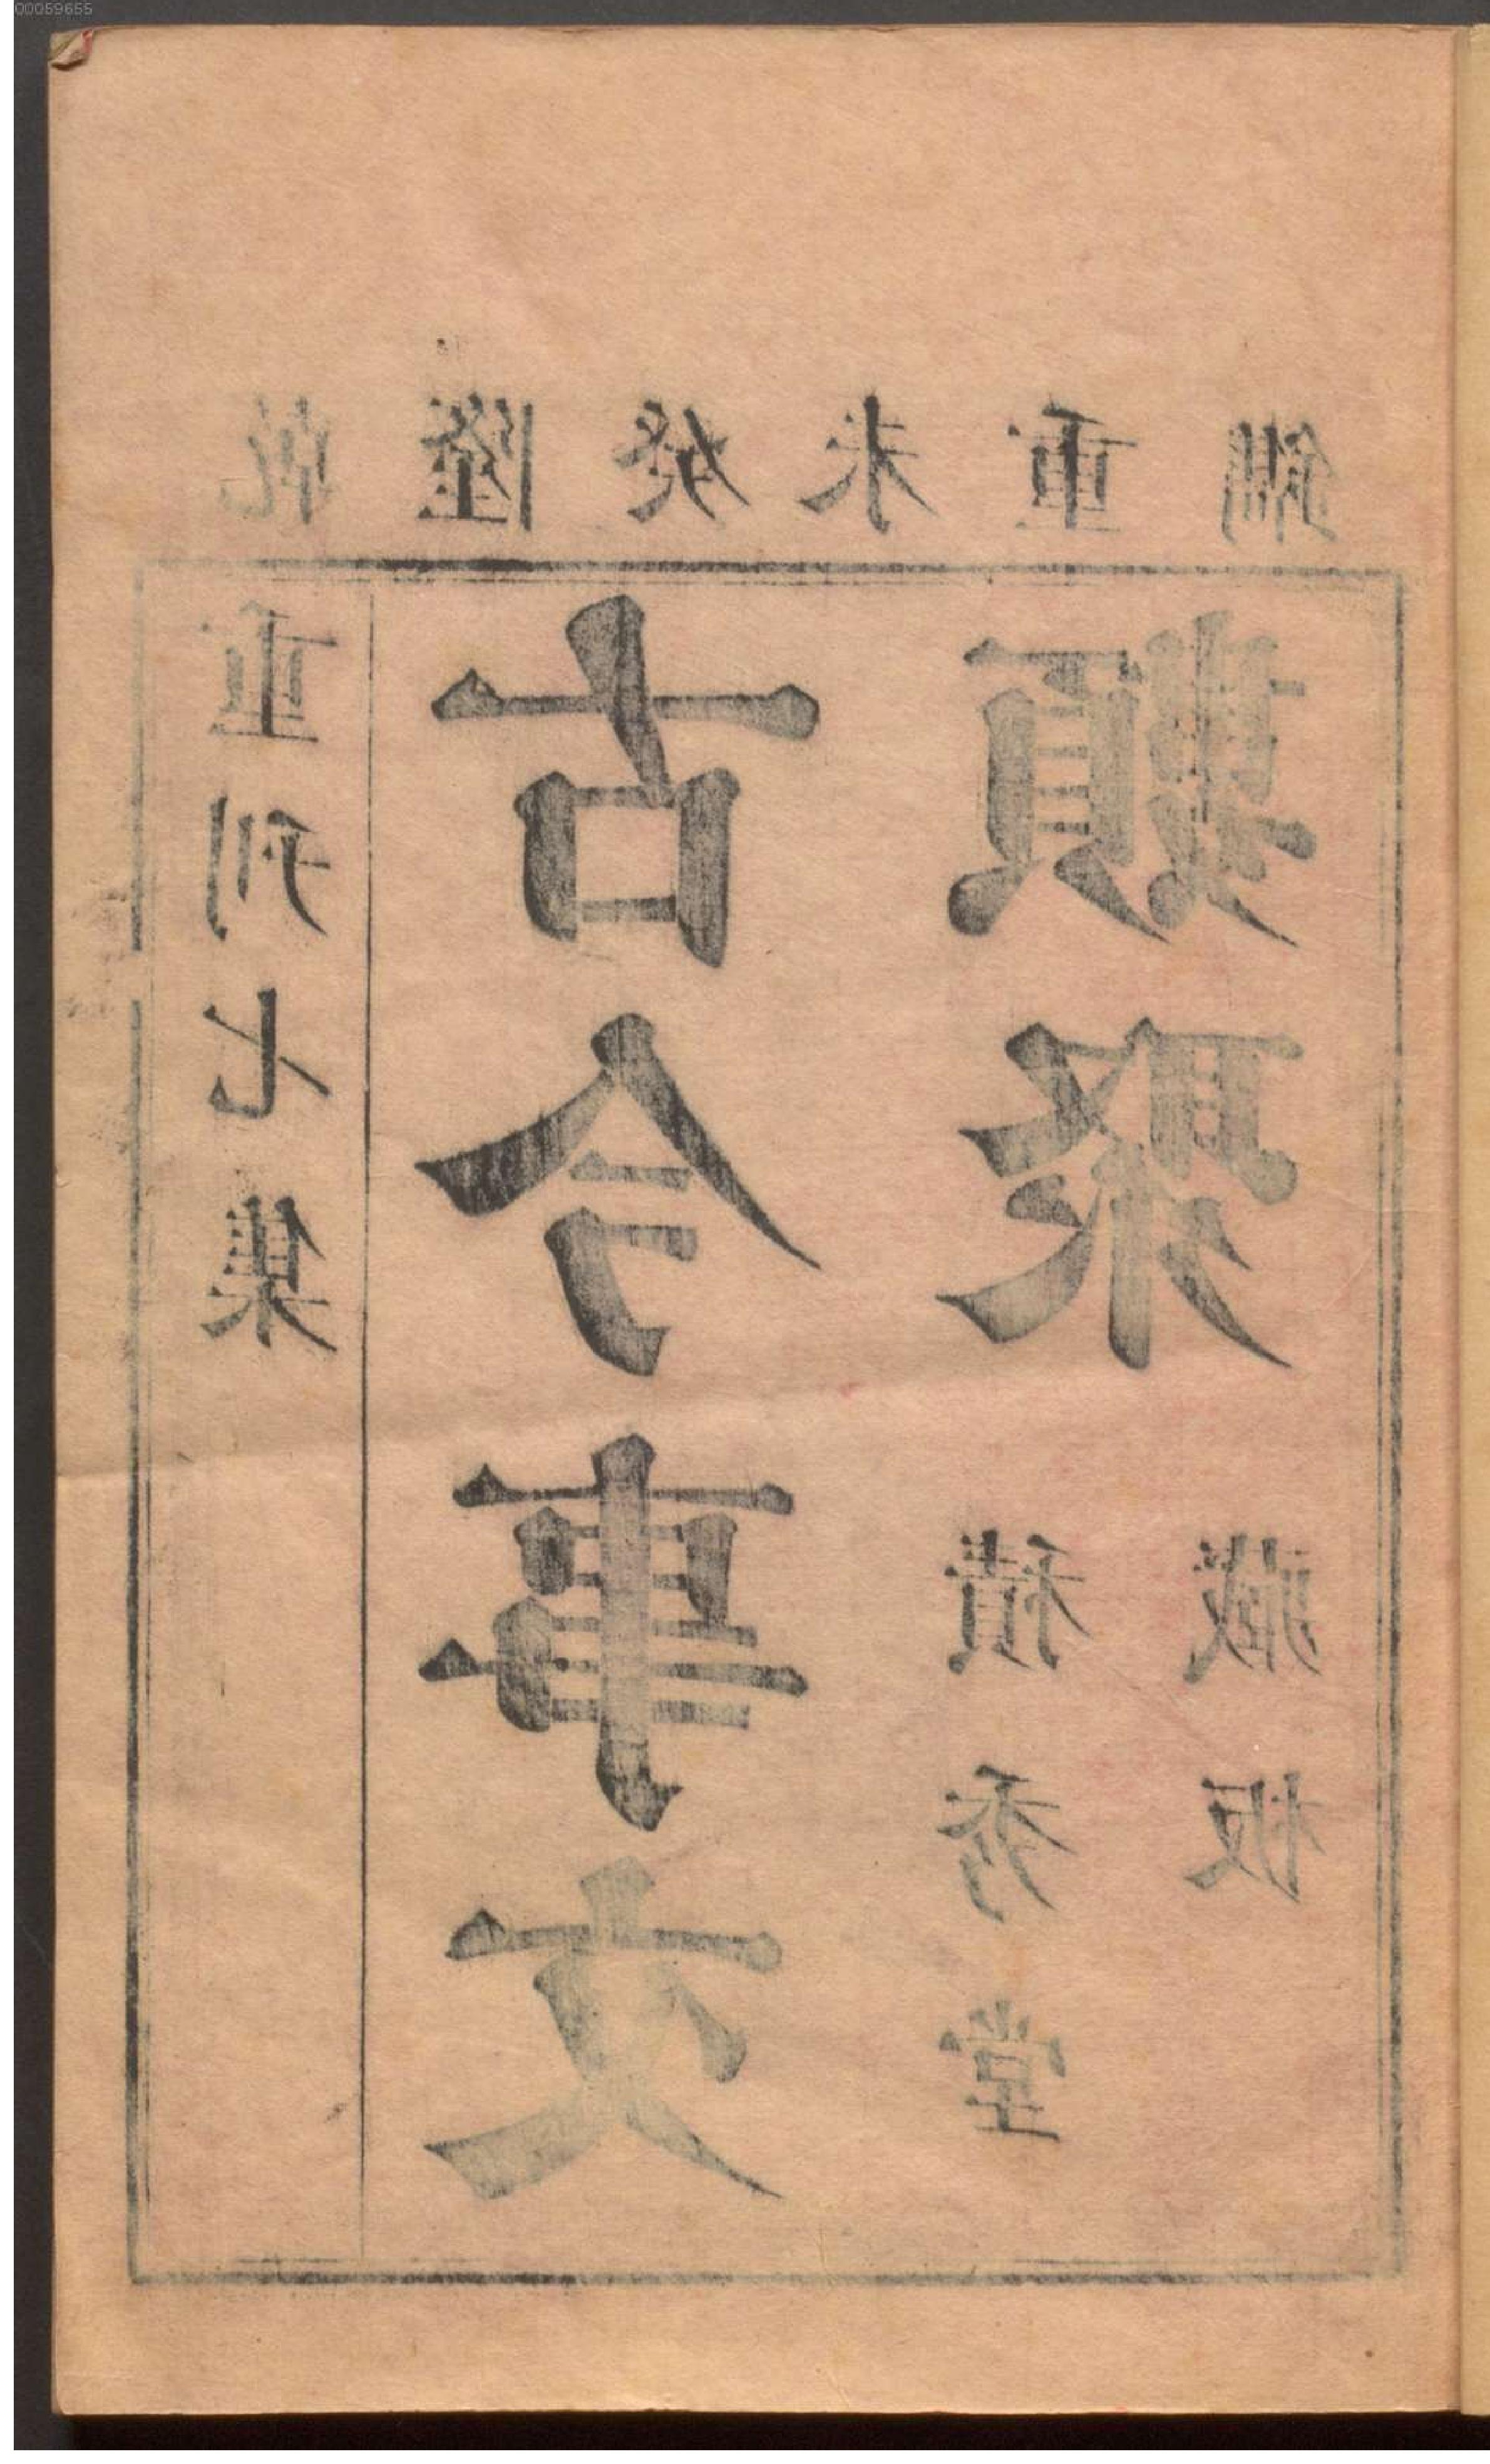 00059655
乾隆癸未重鐫
重刊七集
古今事文
類聚
積秀堂
藏板